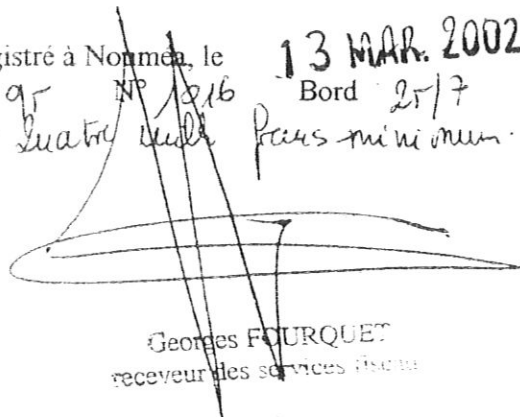 gistré à Nouméa, le 13 MAR. 2002
95 N° 1816 Bord 25/7
Quatre mille francs minimum.
Georges FOURQUET
receveur des services fiscaux